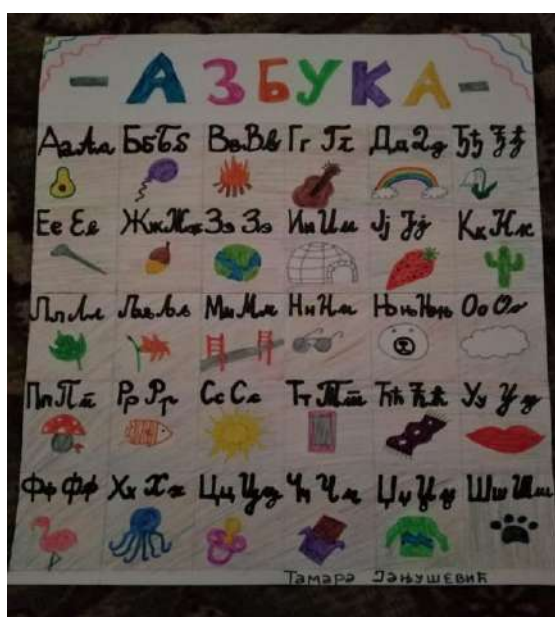 - АЗБУКА -
Аа Аа Бб Бб Вв Вв Гг Гг Дд Дд Ђђ Ђђ
Ее Ее Жж Жж Зз Зз Ии Ии Јј Јј Кк Кк
Лл Лл Љљ Љљ Мм Мм Нн Нн Њњ Њњ Оо Оо
Пп Пп Рр Рр Сс Сс Тт Тт Ћћ Ћћ Уу Уу
Фф Фф Хх Хх Цц Цц Чч Чч Џџ Џџ Шш Шш
Тамара Јањушевић